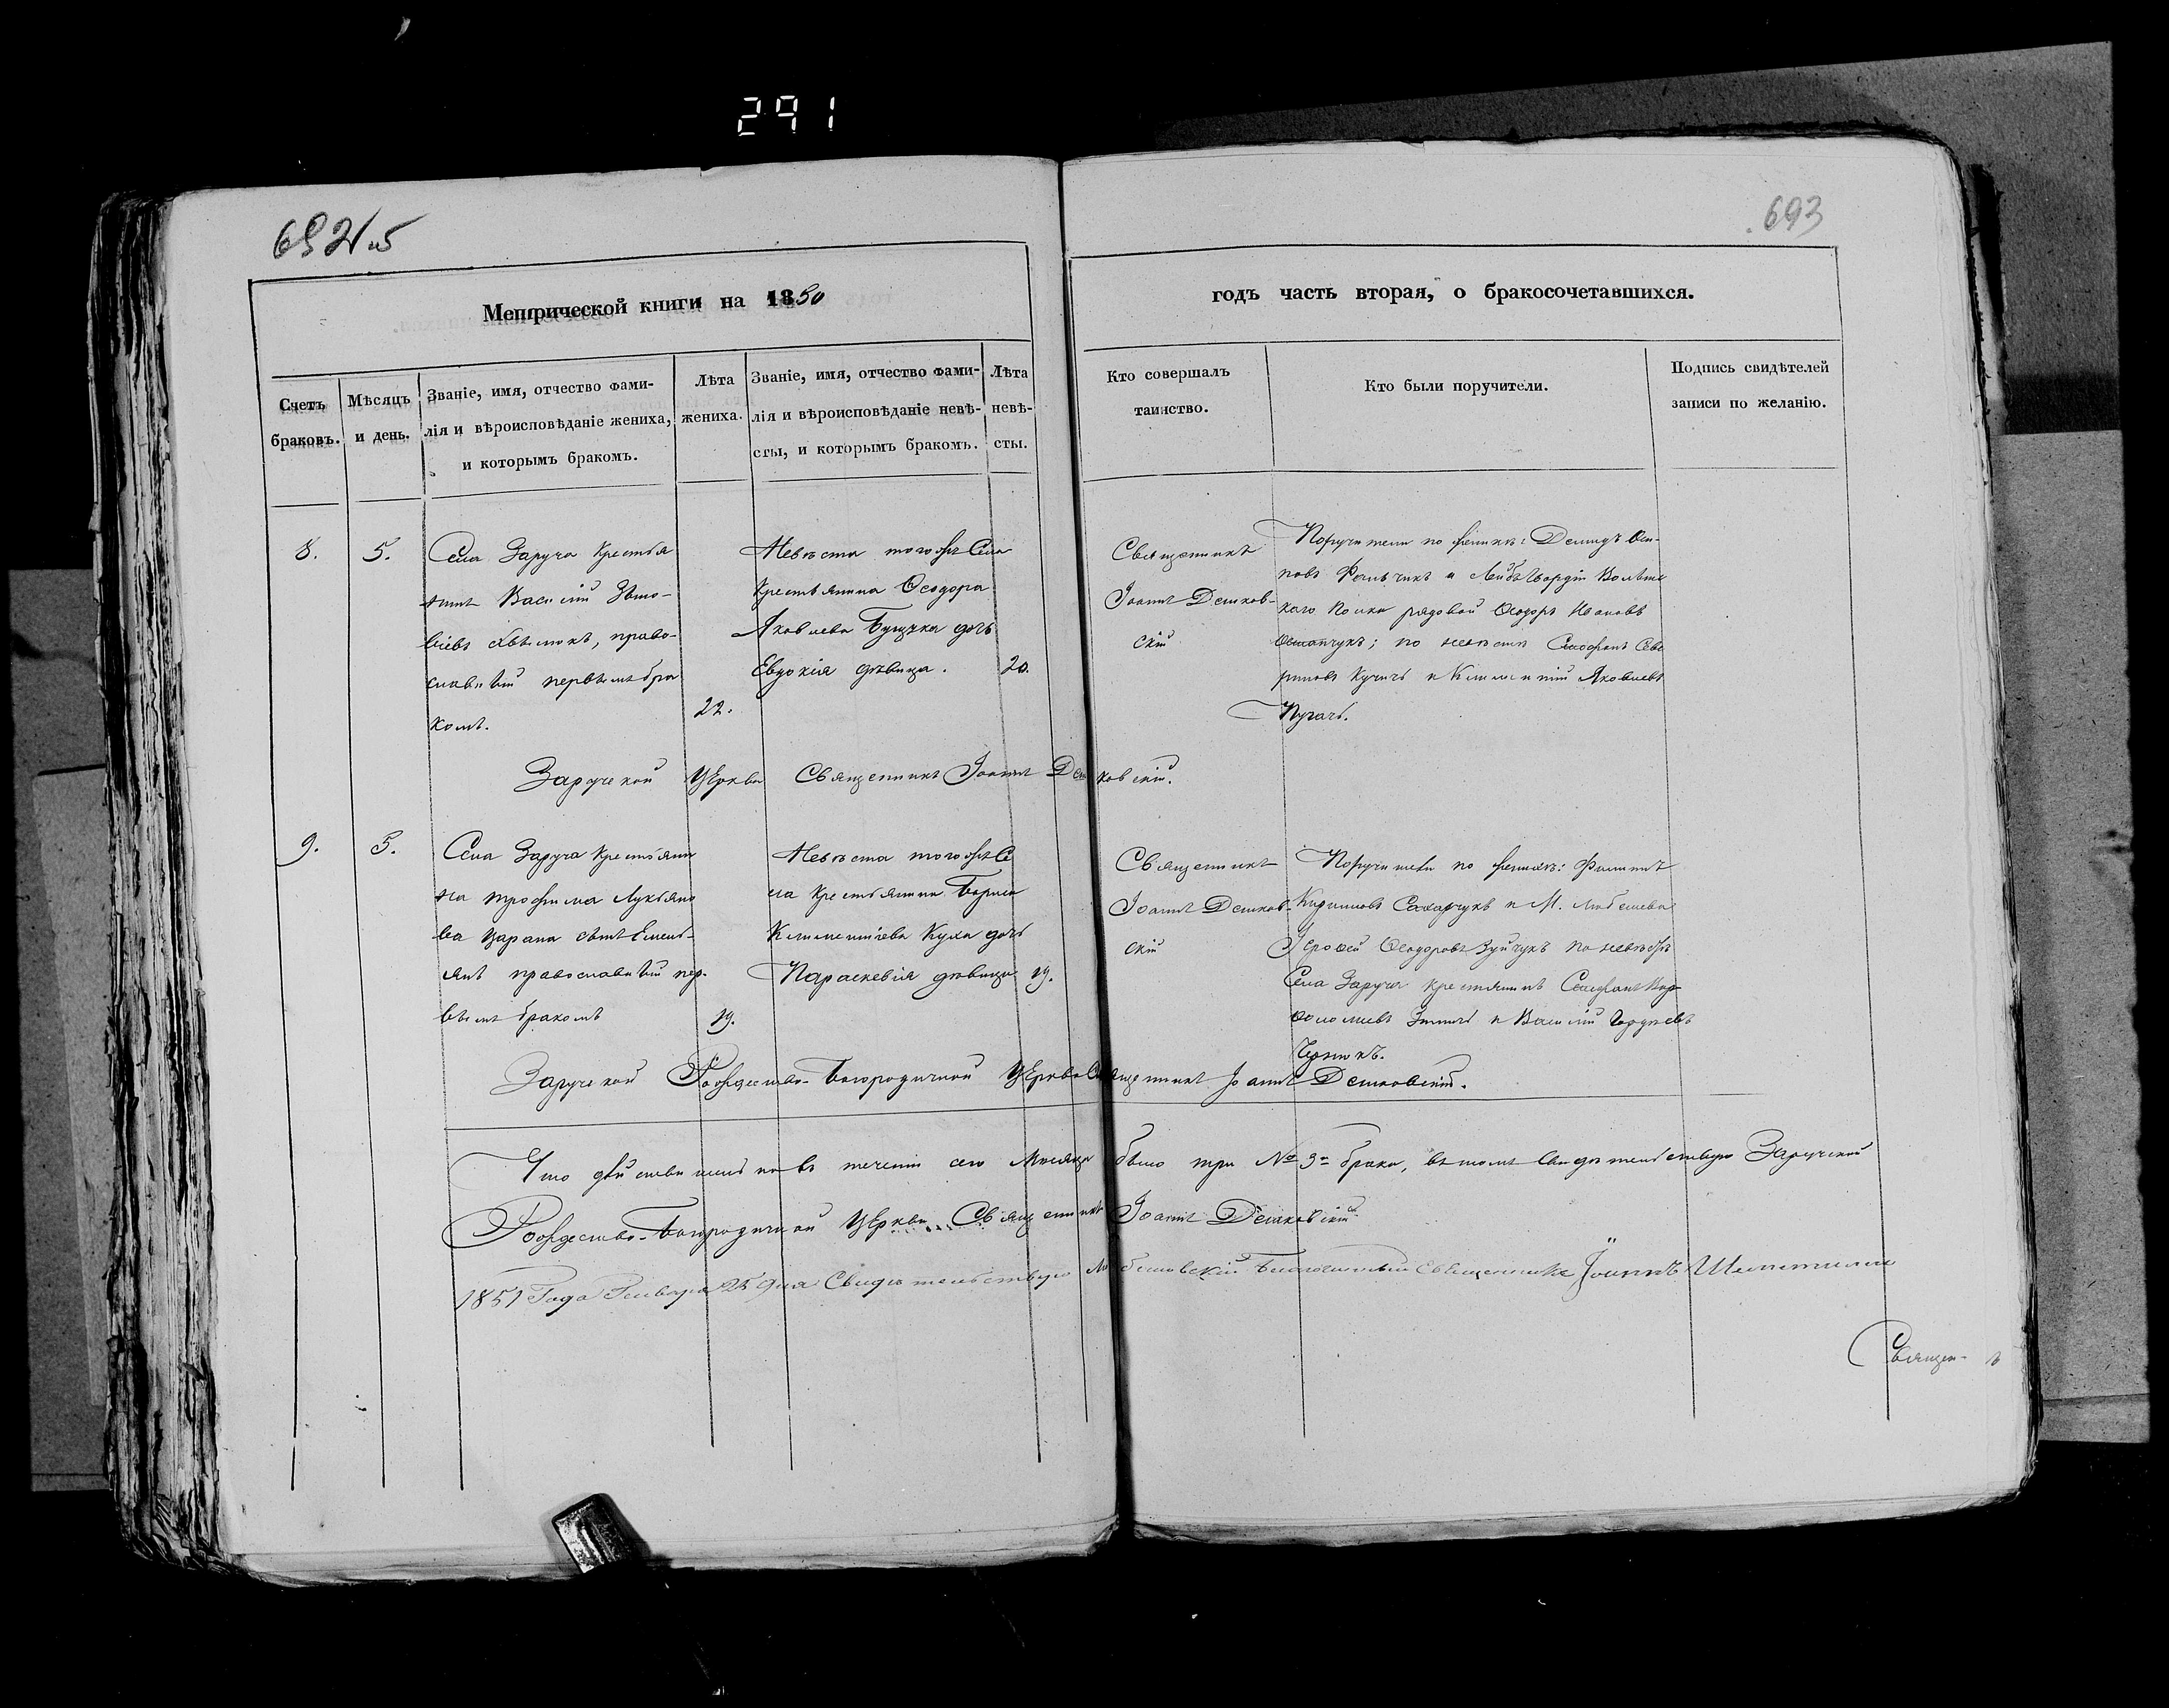 291
693
Метрической книги на 1850
годъ часть вторая, о бракосочетавшихся.
Счетъ
браковъ.
Мѣсяцъ
и день.
Званіе, имя, отчество фами-
лія и вѣроисповѣданіе жениха,
и которымъ бракомъ.
Лѣта
жениха.
Званіе, имя, отчество фами-
лія и вѣроисповѣданіе невѣ-
сты, и которымъ бракомъ.
Лѣта
невѣ-
сты.
Кто совершалъ
таинство.
Кто были поручители.
Подпись свидѣтелей
записи по желанію.
8.
5.
Села Заруча Крестья
Василій
право-
славный первымъ бра
комъ.
22.
Невѣста тогожъ Села
Крестьянина Ѳеодора
Яковлева дочь
Евдокія дѣвица.
20.
Священникъ
Іоаннъ Демков-
скій
Поручители по женихѣ: Демидъ Оси-
повъ и Лейбъ Гвардіи Волынс
каго Полка рядовой Ѳеодоръ Ивановъ
по невѣстѣ
Климентій Яковлевъ
Пугачъ.
Заручской Церкви Священникъ Іоаннъ Демковскій.
9.
5.
Села Заруча Крестьяни
на Трофима Лукьяно
ва сынъ Емель-
янъ православный пер-
вымъ бракомъ
19.
Невѣста тогожъ Се
ла Крестьянина Бориса
Климентіева Куха дочь
Параскевія дѣвица
19.
Священникъ
Іоаннъ Демков-
скій
Поручители по женихѣ: Филиппъ
Кирилловъ Сахарчукъ и М. Любешева
Ѳеодоровъ Зуйчукъ по невѣстѣ
Села Заруча Крестьянинъ
и Василій
Заручской Рождество-Богородичной Церкви Священникъ Іоаннъ Демковскій.
Что дѣйствительно въ теченіи сего Мѣсяца было три № 3й брака, въ томъ свидѣтельствую Заручской
Рождество-Богородичной Церкви Священникъ Іоаннъ Демковскій
1851 Года Января 25 дня Свидѣтельствую Любешовскій Благочинный Священникъ Іоаннъ
Священ-